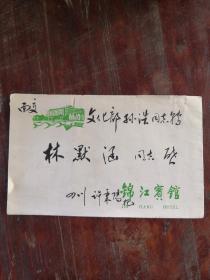 面交
文化部孙浩同志转
林默涵 同志 启
四川 许
锦江宾馆
HOTEL